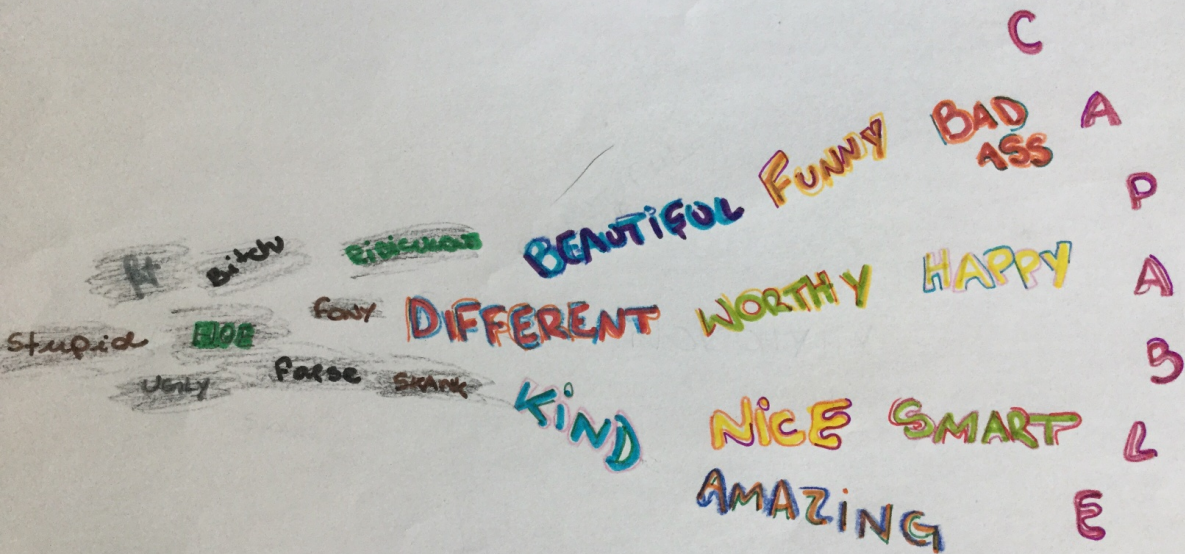 Bitch RIDICULOUS BEAUTIFUL FUNNY BAD
ASS
Stupid HOE FONY DIFFERENT WORTHY HAPPY
UGLY False SKANK KIND NICE SMART
AMAZING
C
A
P
A
B
L
E